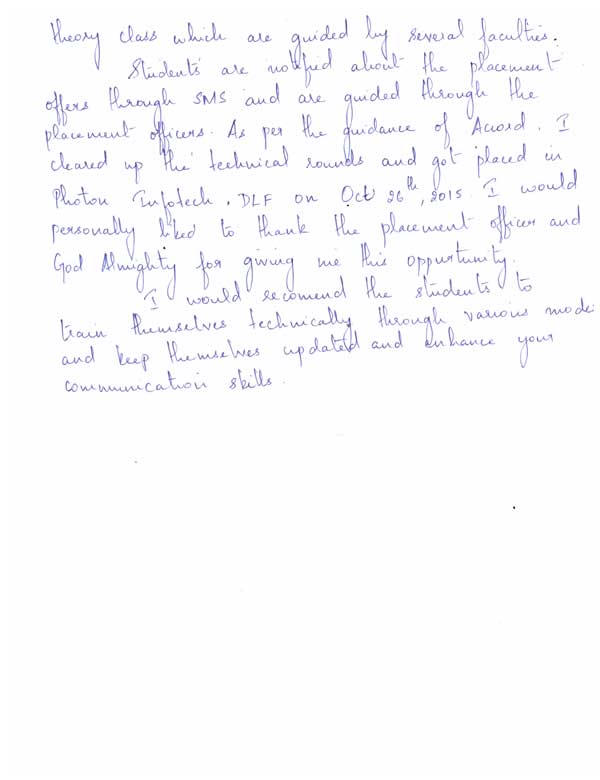 theory class which are guided by several faculties.
Students are notified about the placement
offers through SMS and are guided through the
placement officers. As per the guidance of Accord. I
cleared up the technical rounds and got placed in
Photon Infotech, DLF on Oct 26th, 2015. I would
personally liked to thank the placement officer and
God Almighty for giving me this oppurtunity.
I would recomend the students to
train themselves technically through various mode
and keep themselves updated and enhance your
communication skills.